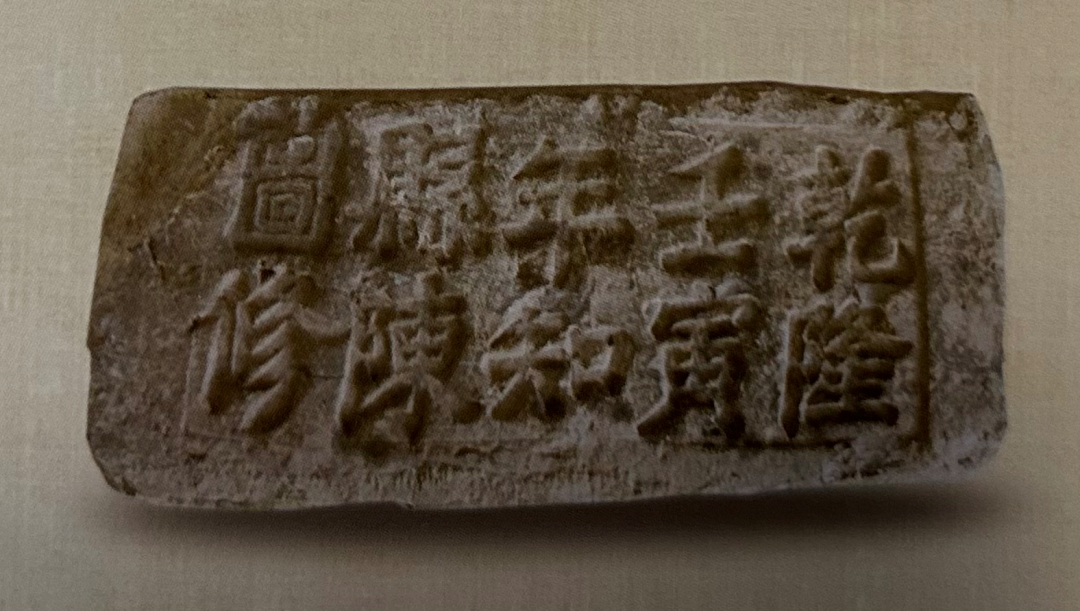 乾隆
壬寅
年知
縣陳
圖修